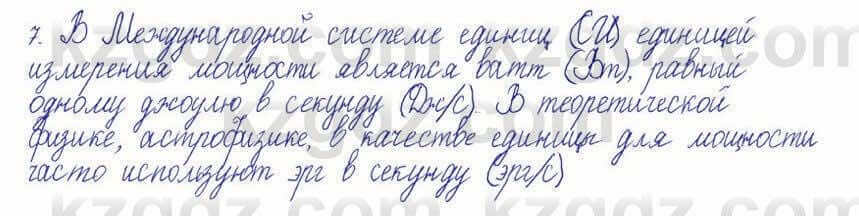 7. В Международной системе единиц (СИ) единицей
измерения мощности является ватт (Вт), равный
одному джоулю в секунду (Дж/с). В теоретической
физике, астрофизике, в качестве единицы для мощности
часто используют эрг в секунду (эрг/с)